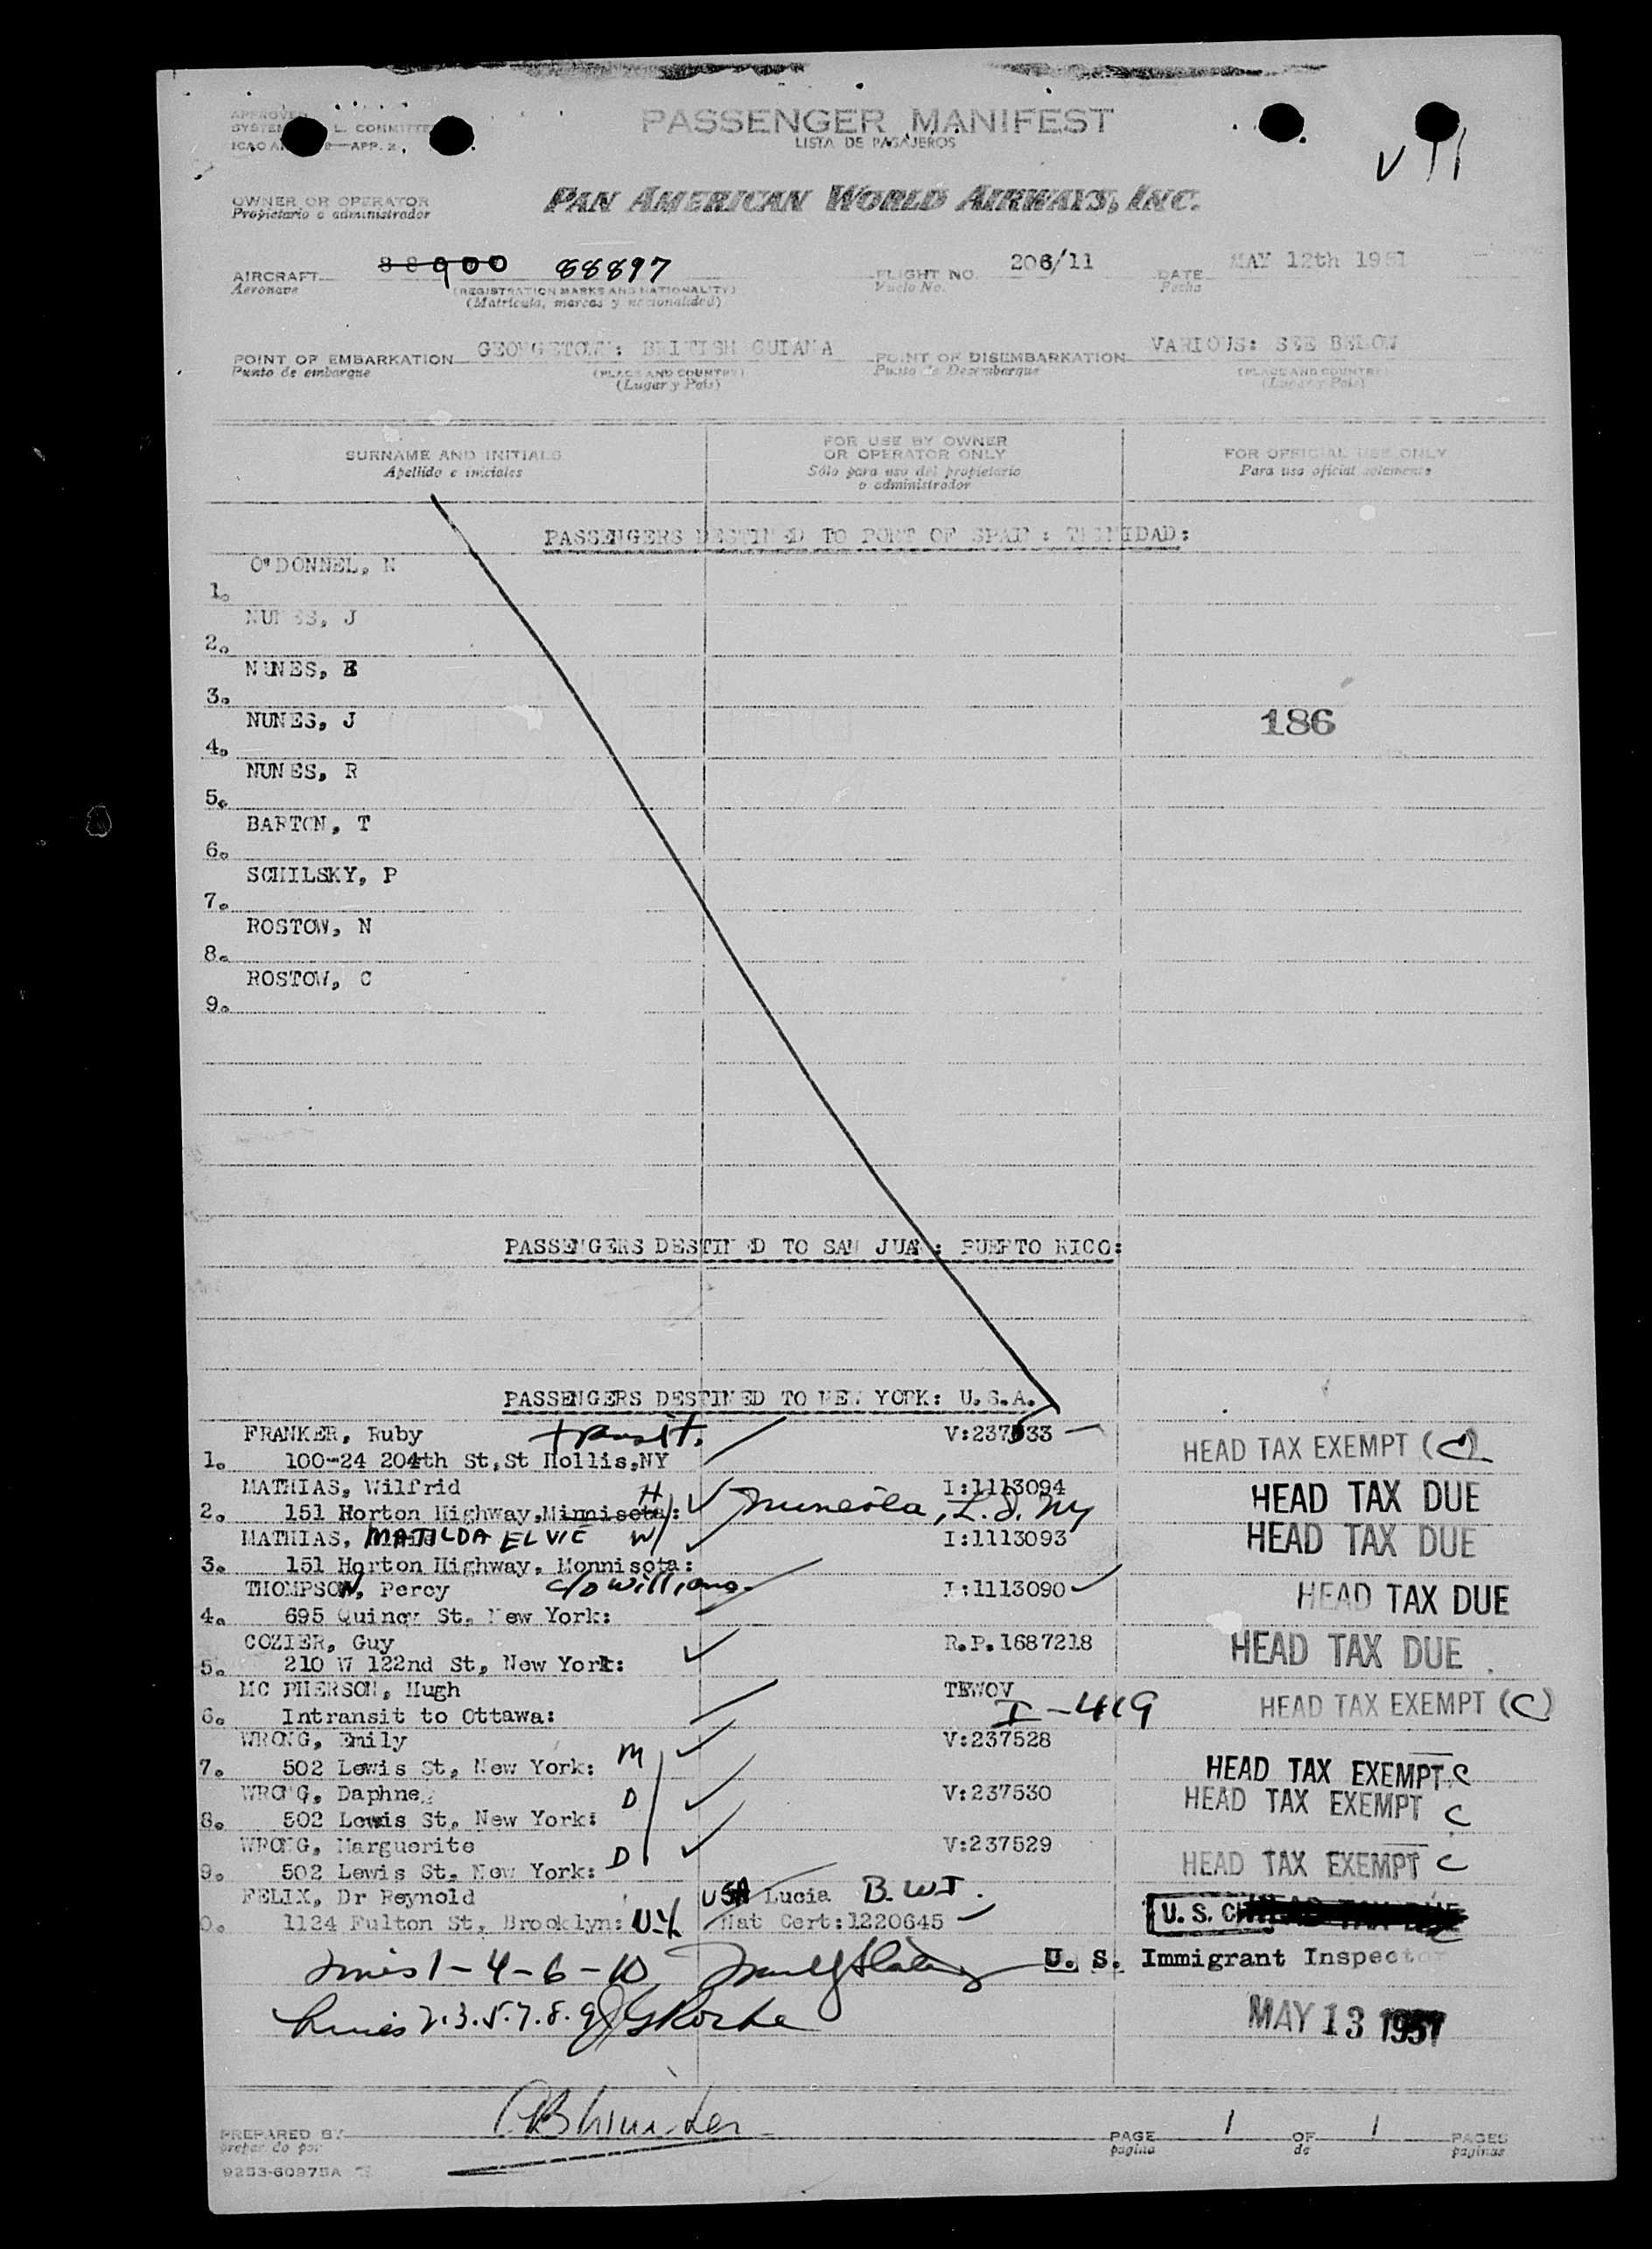 PASSENGER MANIFEST
LISTA DE PASAJEROS
ICAO
APP. 2
V 11
OWNER OR OPERATOR
Propietario o administrador
PAN AMERICAN WORLD AIRWAYS, INC.
AIRCRAFT 88900 88897 FLIGHT NO. 206/11 DATE MAY 12th 1951
Aeronave (REGISTRATION MARKS AND NATIONALITY) Vuelo No. Fecha
(Matricula, marcas y nacionalidad)
POINT OF EMBARKATION GEORGETOWN: BRITISH GUIANA POINT OF DISEMBARKATION VARIOUS: SEE BELOW
Punto de embarque (PLACE AND COUNTRY) Punto de Desembarque (PLACE AND COUNTRY)
(Lugar y Pais) (Lugar y Pais)
SURNAME AND INITIALS FOR USE BY OWNER OR OPERATOR ONLY FOR OFFICIAL USE ONLY
Apellido e iniciales Sólo para uso del propietario o administrador Para uso oficial solamente
PASSENGERS DESTINED TO PORT OF SPAIN: TRINIDAD:
O'DONNEL, N
1.
NUNES, J
2.
NUNES, E
3.
NUNES, J 186
4.
NUNES, R
5.
BARTON, T
6.
SCHILSKY, P
7.
ROSTOW, N
8.
ROSTOW, C
9.
PASSENGERS DESTINED TO SAN JUAN: PUERTO RICO:
PASSENGERS DESTINED TO NEW YORK: U.S.A.
FRANKER, Ruby transit. V:237533
1. 100-24 204th St, St Hollis, NY HEAD TAX EXEMPT (C)
MATHIAS, Wilfrid H I:1113094 HEAD TAX DUE
2. 151 Horton Highway, Minnisota: Mineola, L.I. NY
MATHIAS, MATILDA ELVIE W I:1113093 HEAD TAX DUE
3. 151 Horton Highway, Monnisota:
THOMPSON, Percy c/o Williams I:1113090 HEAD TAX DUE
4. 695 Quincy St, New York:
COZIER, Guy R.P.1687218 HEAD TAX DUE
5. 210 W 122nd St, New York:
MC PHERSON, Hugh TEWOV
6. Intransit to Ottawa: I-419 HEAD TAX EXEMPT (C)
WRONG, Emily V:237528
7. 502 Lewis St, New York: M HEAD TAX EXEMPT C
WRONG, Daphne D V:237530 HEAD TAX EXEMPT C
8. 502 Lewis St, New York:
WRONG, Marguerite V:237529
9. 502 Lewis St, New York: D HEAD TAX EXEMPT C
FELIX, Dr Reynold USA Lucia B.W.I.
0. 1124 Fulton St, Brooklyn: N.Y. Nat Cert:1220645 U.S. C
Lines 1-4-6-10 U. S. Immigrant Inspector
Lines 2.3.5.7.8.9 MAY 13 1951
PREPARED BY PAGE 1 OF 1 PAGES
prepar do por pagina de paginas
9253-60975A